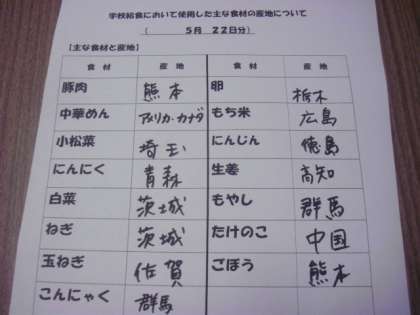 学校給食において使用した主な食材の産地について
(　　5月　22日分)
【主な食材と産地】
食材　産地　食材　産地
豚肉　熊本　卵　栃木
中華めん　アメリカ・カナダ　もち米　広島
小松菜　埼玉　にんじん　徳島
にんにく　青森　生姜　高知
白菜　茨城　もやし　群馬
ねぎ　茨城　たけのこ　中国
玉ねぎ　佐賀　ごぼう　熊本
こんにゃく　群馬